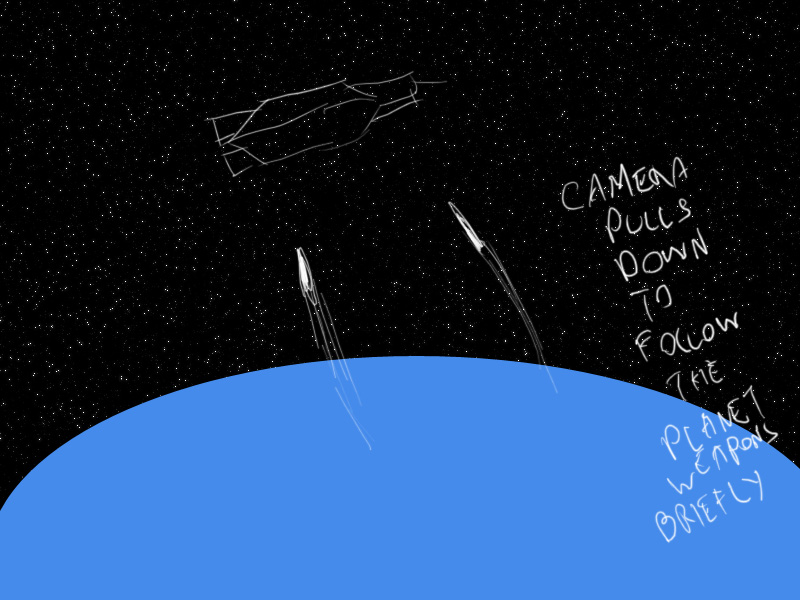 CAMERA
PULLS
DOWN
TO
FOLLOW
THE
PLANET
WEAPONS
BRIEFLY